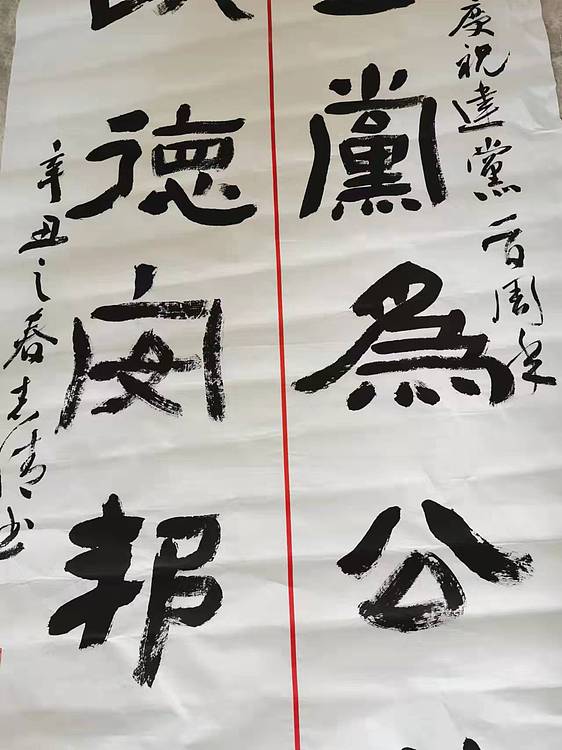 慶祝建黨百周年
黨為公
德安邦
辛丑之春志清书